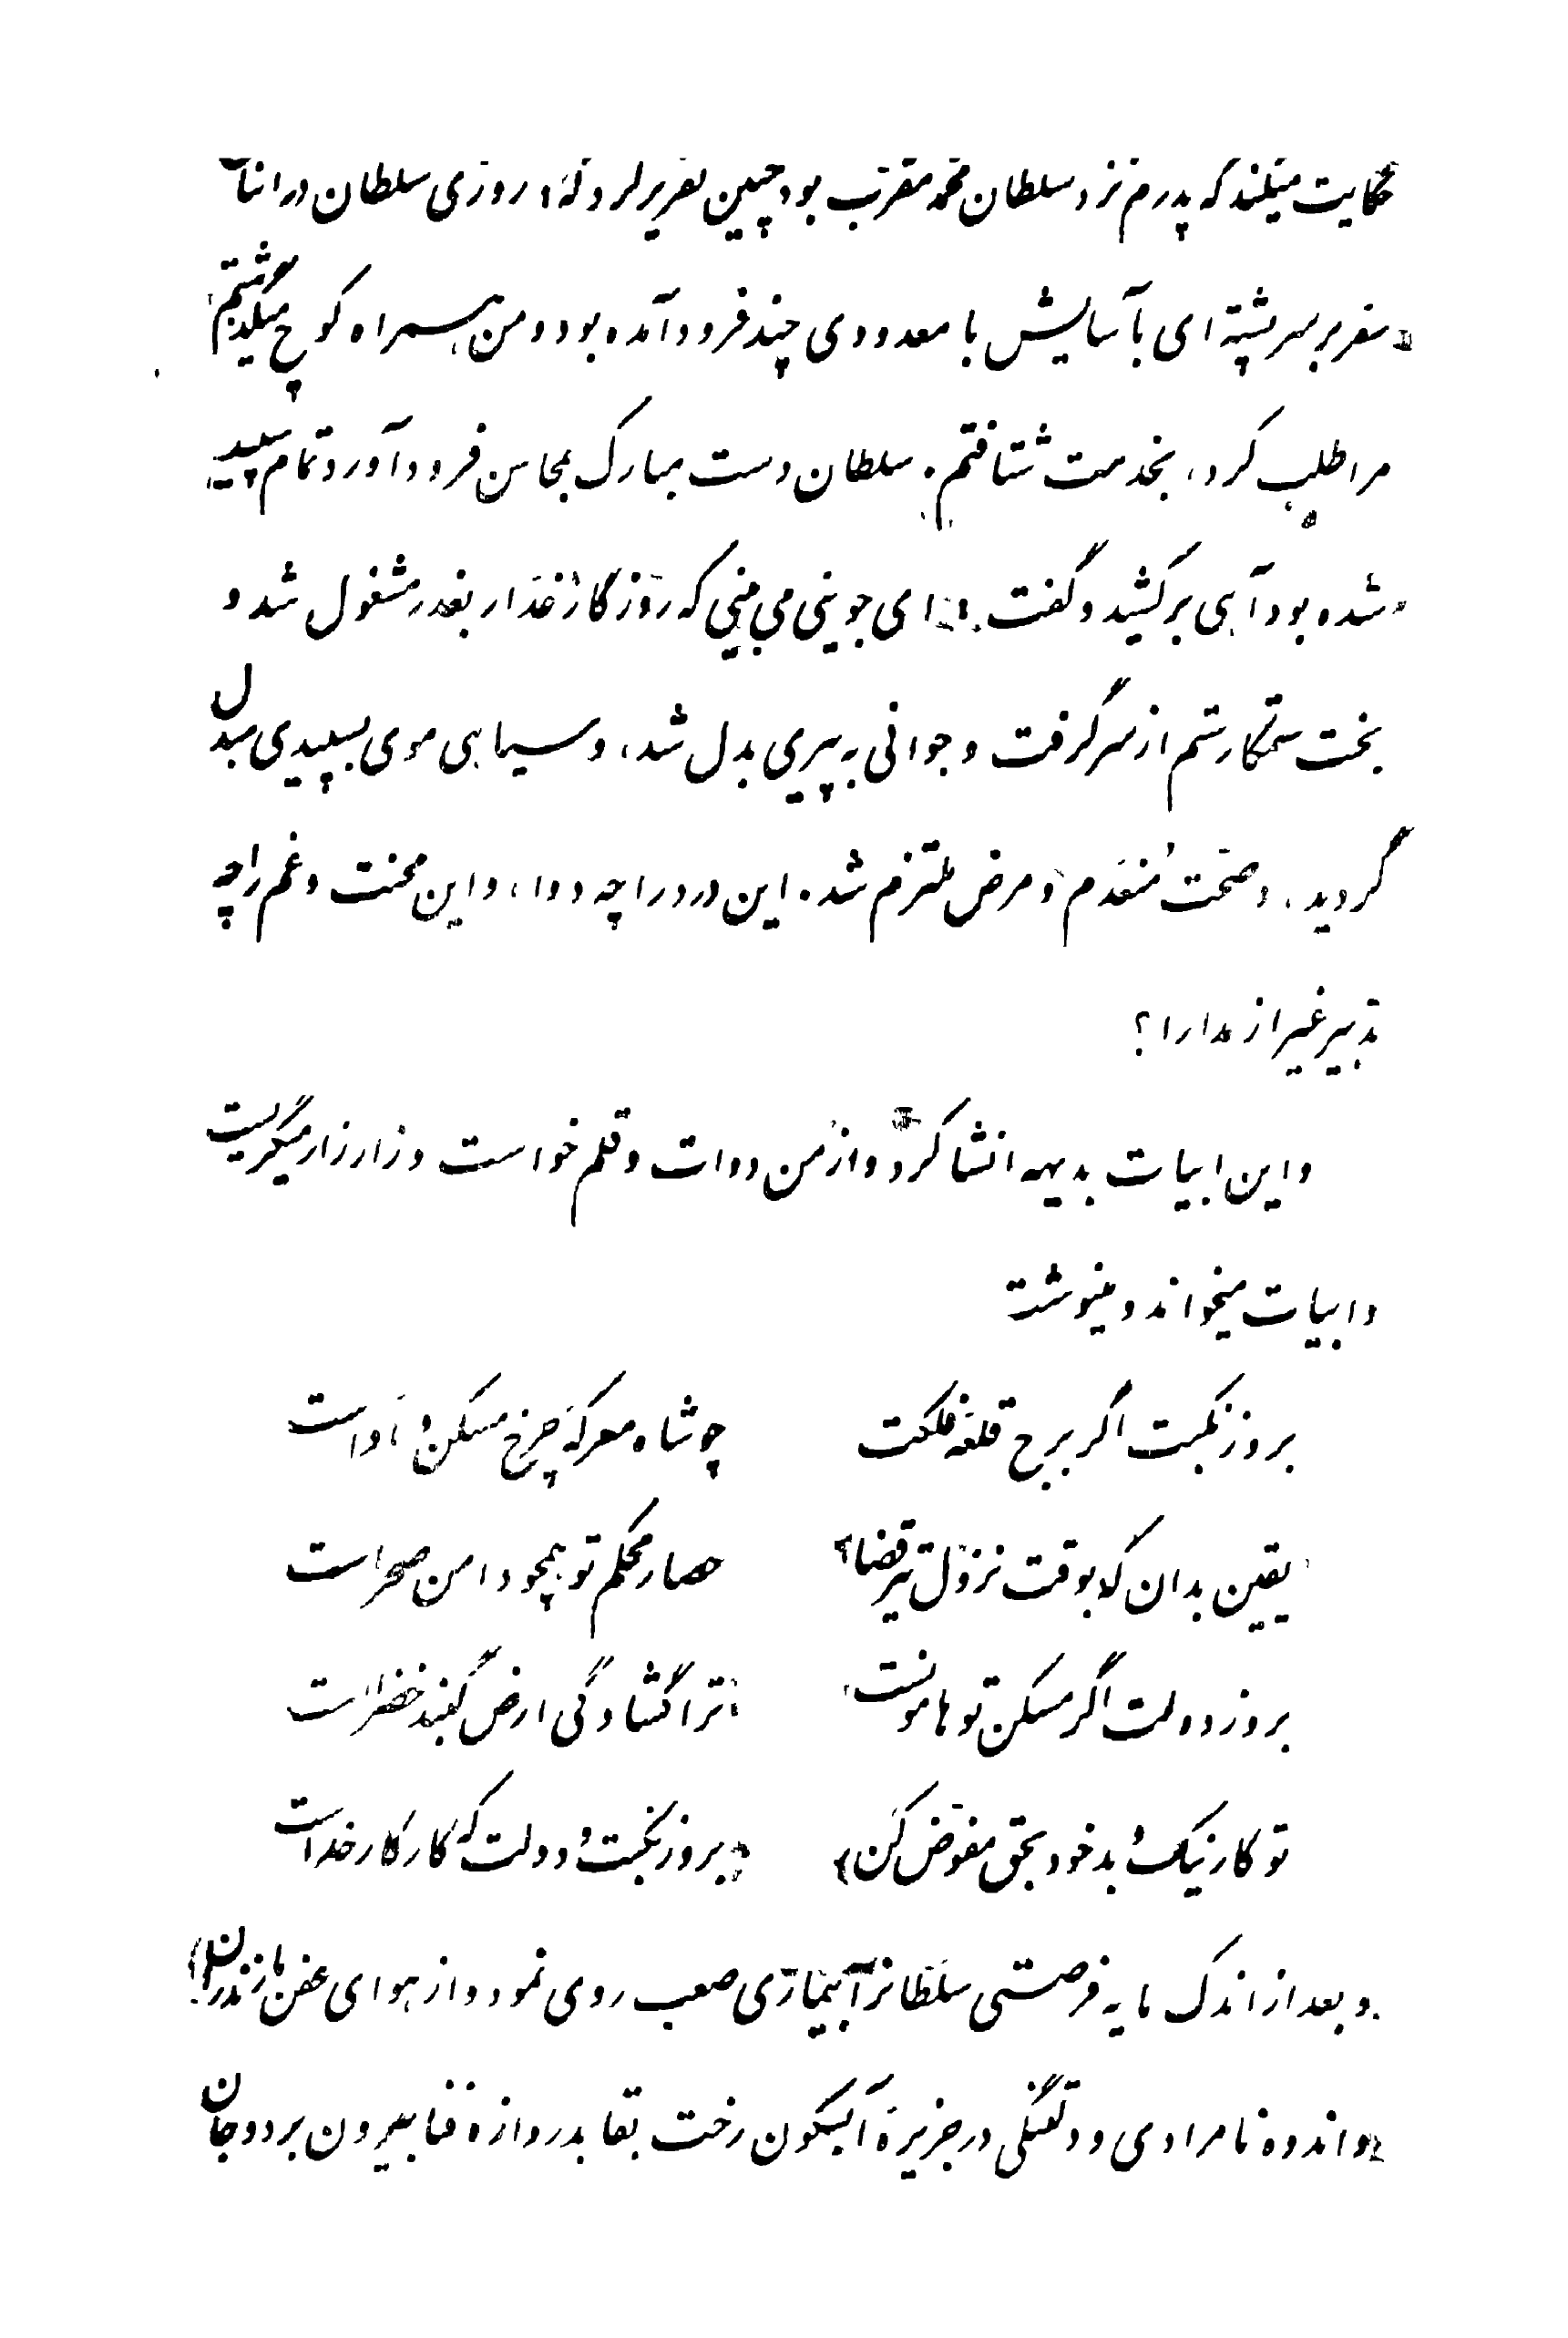 حکایت میکند که پدرم نزد سلطان محمد مقرّب بود چنین تقریر کرد که، روزی سلطان در اثنای
سفر بر سر پشته‌ای بآسایش با معدودی چند فرود آمده بود و من همراه کوچ میگذشتم
مرا طلب کرد، بخدمت شتافتم. سلطان دست مبارک بمحاسن فرود آورد و تمام سپید
شده بود آهی برکشید و گفت: ای جوینی می‌بینی که روزگار غدّار بغدر مشغول شد و
بخت ستمکار ستم از سر گرفت و جوانی به پیری بدل شد، و سیاهی موی بسپیدی مبدل
گردید، و صحّت منعدم و مرض ملتزم شد. این درد را چه دوا، و این محنت و غم را چه
تدبیر غیر از مدارا؟
و این ابیات بدیهه انشا کرد و از من دوات و قلم خواست و زار زار میگریست
و ابیات میخواند و مینوشت
بروز نکبت اگر برج قلعهٔ فلکت چو شاه معرکهٔ چرخ مسکن و مأواست
یقین بدان که بوقت نزول تیر قضا حصار محکم تو همچو دامن صحراست
بروز دولت اگر مسکن تو هامونست ترا گشادگی ارض گنبد خضراست
تو کار نیک و بد خود بحق مفوّض کن بروز نکبت و دولت که کار کار خداست
و بعد از اندک مایه فرصتی سلطانرا بیماری صعب روی نمود و از هوای عفن مازندران
و اندوه نامرادی و دلتنگی در جزیرهٔ آبسکون رخت بقا بدروازهٔ فنا بیرون برد و جان